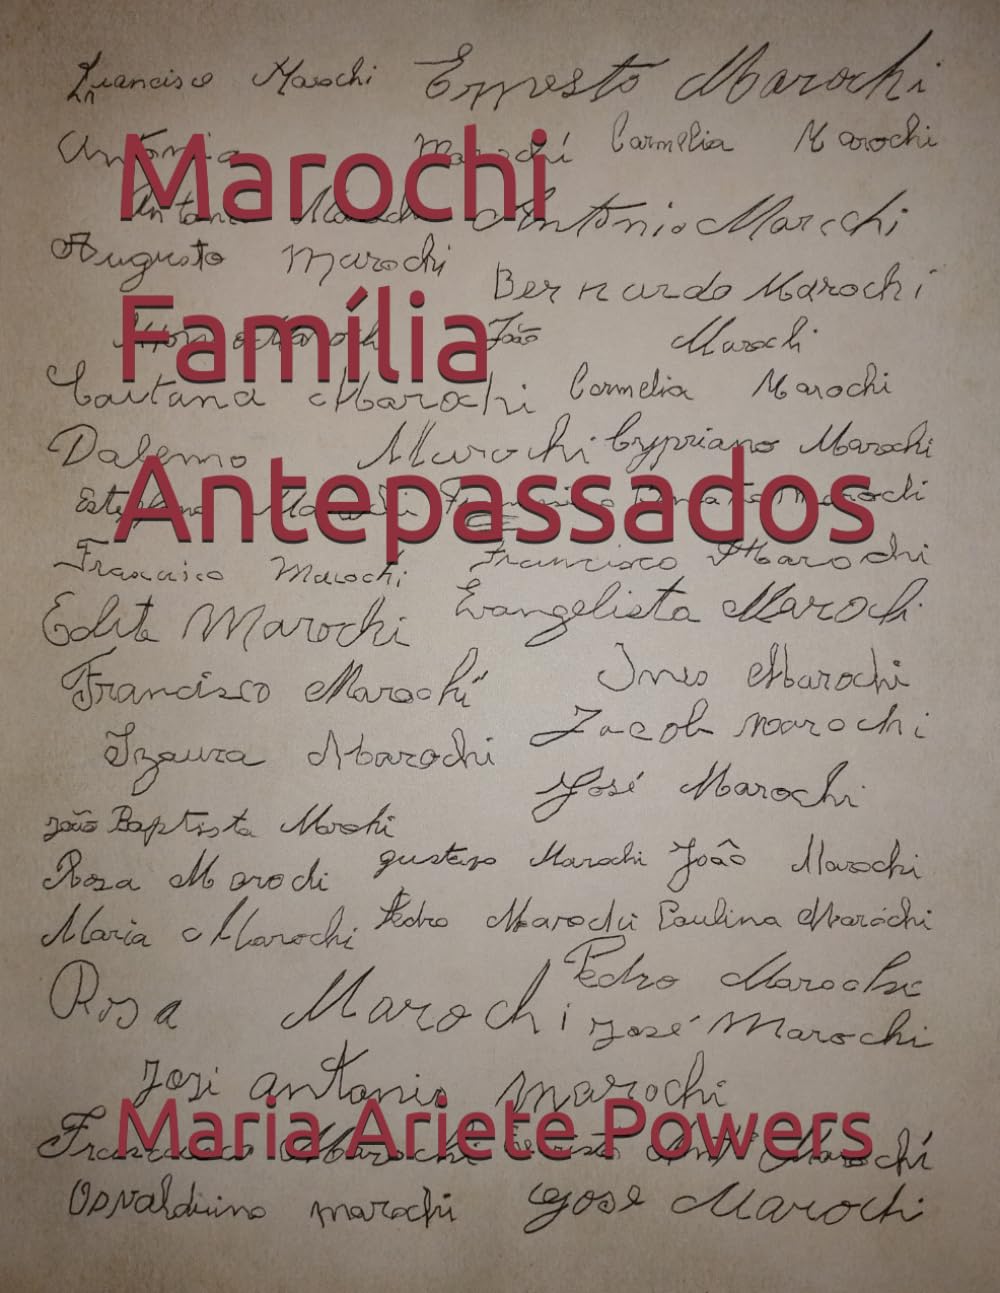 Francisco Marochi Ernesto Marochi
Antonia Marochi Carmelia Marochi
Marochi
Antonio Marochi Antonio Marochi
Augusto Marochi
Bernardo Marochi
Família
João Marochi
Caetana Marochi Carmelia Marochi
Dalermo Marochi Cypriano Marochi
Antepassados
Marochi
Francisco Marochi Francisco Marochi
Edite Marochi Evangelista Marochi
Francisco Marochi Ines Marochi
Izaura Marochi Jacob Marochi
José Marochi
João Baptista Marochi
Rosa Marochi gustavo Marochi João Marochi
Maria Marochi Pedro Marochi Paulina Marochi
Rosa Marochi Pedro Marochi
José Marochi
José antonio marochi
Maria Ariete Powers
Francisco Marochi Marochi
Osvaldivino marochi José Marochi